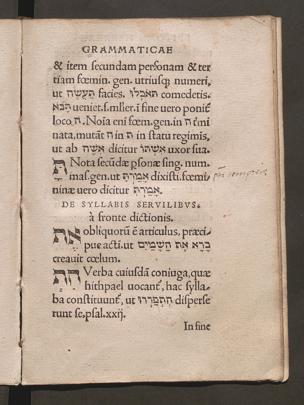 GRAMMATICAE
& item secundam personam & ter
tiam fœmin. gen. utriusq; numeri,
ut תַּעֲשֶׂה facies. תֹּאכְלוּ comedetis.
תָּבֹא ueniet.s.mulier.ī fine uero poniť
loco ה. Noīa enī fœm.gen.in ה mi
nata, mutāt ה in ת in statu regimis,
ut ab אִשָּׁה dicitur אִשְׁתּוֹ uxor sua.
תָּ Nota secūdæ psonæ sing. num.
mas.gen.ut אָמַרְתָּ dixisti.fœmi
ninæ uero dicitur אָמַרְתְּ.
DE SYLLABIS SERVILIBVS.
à fronte dictionis.
אֶת obliquorū ē articulus, præci
pue acti.ut בָּרָא אֶת הַשָּׁמַיִם
creauit cœlum.
הִת Verba cuiusdā coniuga, quæ
hithpael uocanť, hac sylla
ba constituunť, ut הִתְפָּרְדוּ disperse
runt se, psal.xxij.
In fine